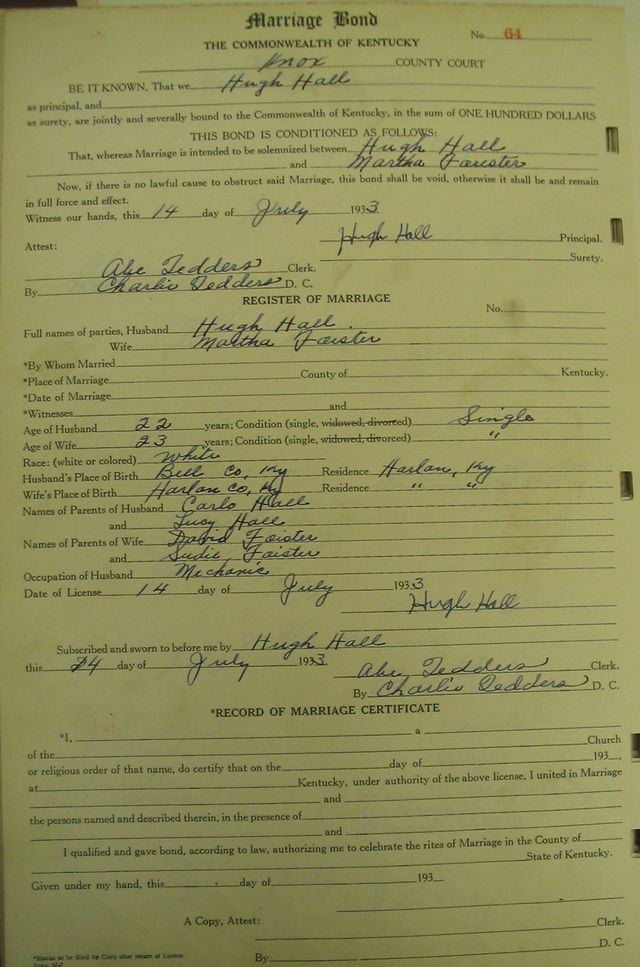 Marriage Bond
No. 61
THE COMMONWEALTH OF KENTUCKY
Knox COUNTY COURT
BE IT KNOWN, That we Hugh Hall
as principal, and
as surety, are jointly and severally bound to the Commonwealth of Kentucky, in the sum of ONE HUNDRED DOLLARS
THIS BOND IS CONDITIONED AS FOLLOWS:
That, whereas Marriage is intended to be solemnized between Hugh Hall
and Martha Foister
Now, if there is no lawful cause to obstruct said Marriage, this bond shall be void, otherwise it shall be and remain
in full force and effect.
Witness our hands, this 14 day of July 1933
Hugh Hall Principal.
Attest: Surety.
Abe Tedders Clerk.
By Charlie Tedders D. C.
REGISTER OF MARRIAGE
No.
Full names of parties, Husband Hugh Hall.
Wife Martha Foister
*By Whom Married
*Place of Marriage County of Kentucky.
*Date of Marriage
*Witnesses and
Age of Husband 22 years; Condition (single, widowed, divorced) Single
Age of Wife 23 years; Condition (single, widowed, divorced) "
Race: (white or colored) White
Husband's Place of Birth Bell Co, Ky Residence Harlan, Ky
Wife's Place of Birth Harlan Co, Ky Residence " "
Names of Parents of Husband Carlo Hall
and Lucy Hall
Names of Parents of Wife David Foister
and Sudie Foister
Occupation of Husband Mechanic
Date of License 14 day of July 1933
Hugh Hall
Subscribed and sworn to before me by Hugh Hall
this 14 day of July 1933
Abe Tedders Clerk.
By Charlie Tedders D. C.
*RECORD OF MARRIAGE CERTIFICATE
*I, a
of the Church
or religious order of that name, do certify that on the day of 193 ,
at Kentucky, under authority of the above license, I united in Marriage
and
the persons named and described therein, in the presence of
and
I qualified and gave bond, according to law, authorizing me to celebrate the rites of Marriage in the County of
State of Kentucky.
Given under my hand, this day of 193
A Copy, Attest: Clerk.
By D. C.
*Blanks to be filled by Clerk after return of License